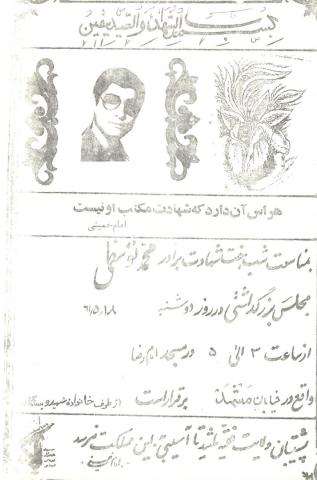 بسم رب الشهداء والصدیقین
هراس آن دارد که شهادت مکتب او نیست
امام خمینی
بمناسبت شب هفت شهادت برادر محمد
مجلس بزرگداشتی در روز دوشنبه ۶۱/۵/۱۸
از ساعت ۳ الی ۵ در مسجد امام رضا
واقع در خیابان مشهد برقرار است از طرف خانواده شهید و بستگان
پشتیبان ولایت فقیه باشید تا آسیبی به این مملکت نرسد
امام خمینی